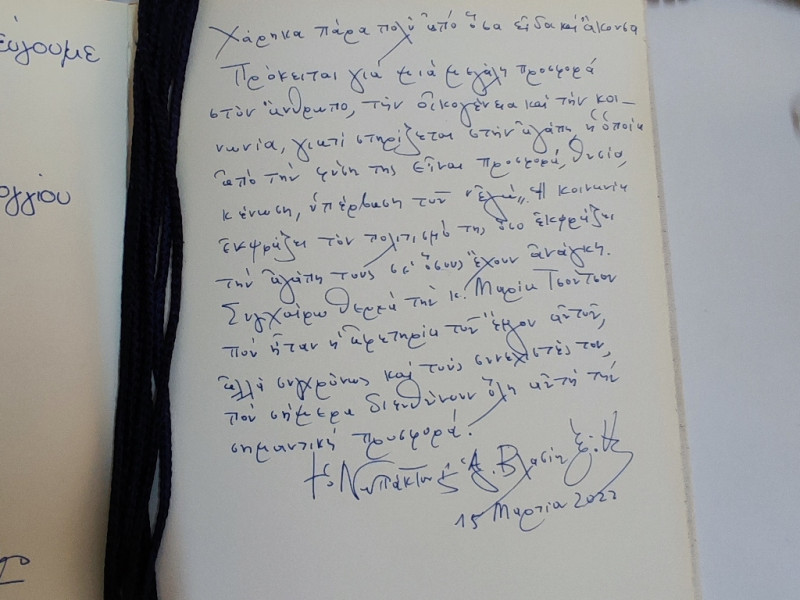 εύγουμε
ογγίου
Χάρηκα πάρα πολύ ἀπό ὅσα εἶδα καί ἄκουσα
Πρόκειται γιά μιά μεγάλη προσφορά
στόν ἄνθρωπο, τήν οἰκογένεια καί τήν κοι-
νωνία, γιατί στηρίζεται στήν ἀγάπη, ἡ ὁποία
ἀπό τήν φύση της εἶναι προσφορά, θυσία,
κένωση, ὑπέρβαση τοῦ "ἐγώ". Ἡ κοινωνία
ἐκφράζει τόν πολιτισμό της, ὅσο ἐκφράζει
τήν ἀγάπη τους σ' ὅσους ἔχουν ἀνάγκη.
Συγχαίρω θερμά τήν κ. Μαρία Τσούτσου
πού ἦταν ἡ πρωτεργάτρια τοῦ ἔργου αὐτοῦ,
ἀλλά συγχρόνως καί τούς συνεχιστές του,
πού σήμερα διευθύνουν ὅλη αὐτή τήν
σημαντική προσφορά.
† ὁ Ναυπάκτου & Ἁγ. Βλασίου
15 Μαρτίου 2022